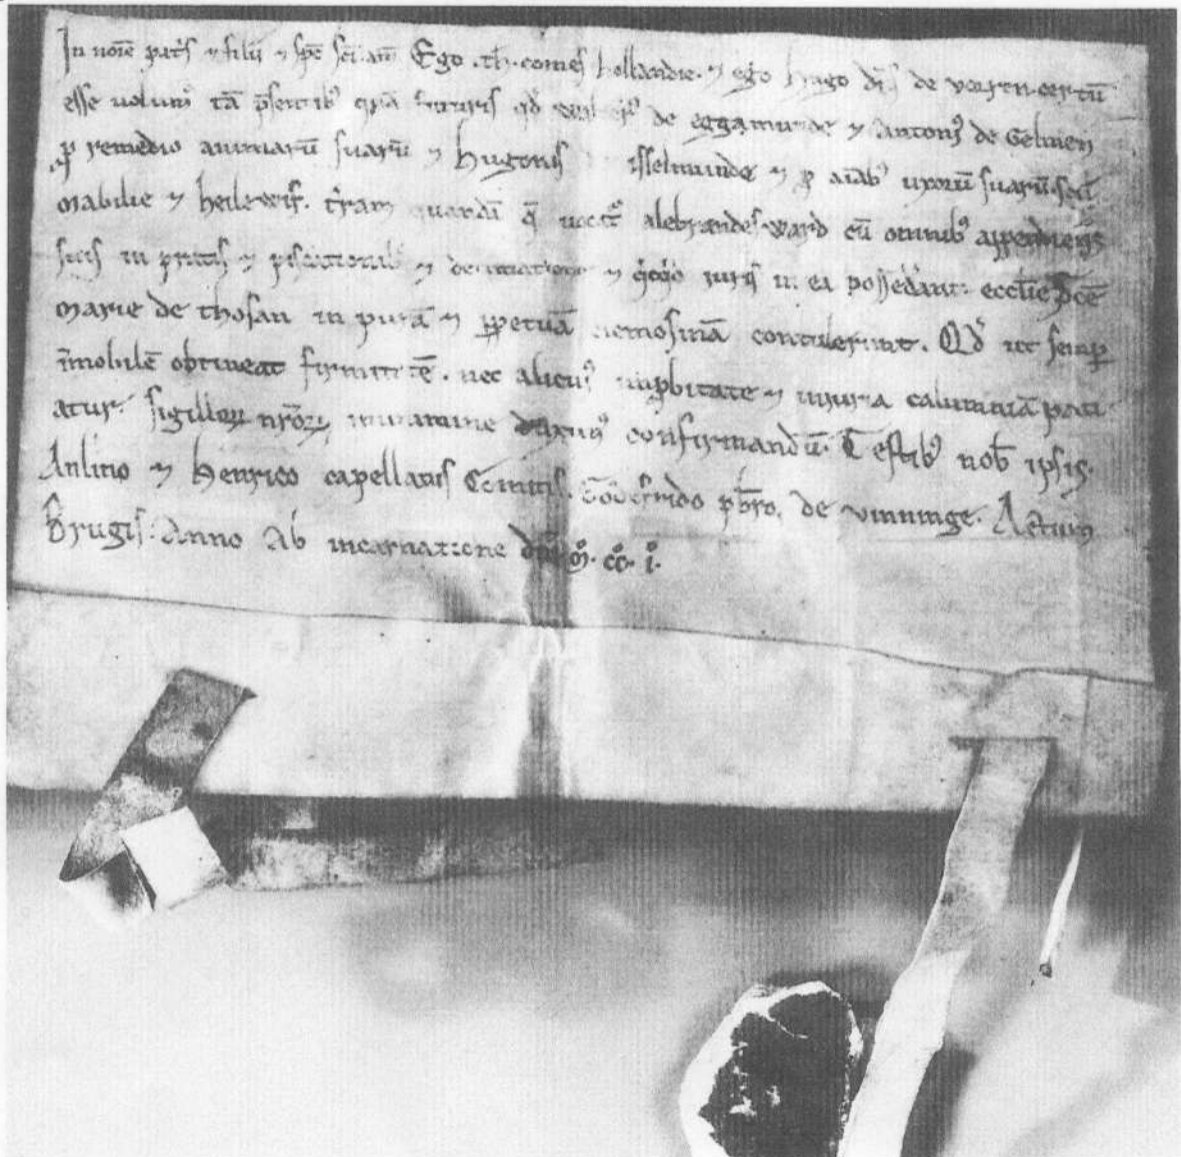 In noıē pat̄s ⁊ filii ⁊ sp̄c sc̄i am̄ Ego .th. comes hollandie. ⁊ ego hugo dn̄s de certū
esse uolum᷒ tā p̄sentib᷒ quā futuris qd̄ de eggamunde ⁊ Antoni᷒ de Gelmen
ꝓ remedio animarū suarū ⁊ hugonis isselmunde ⁊ ꝓ aīab᷒ uxorū suarū. scil̄.
Mabilie ⁊ heilewif. t̄ram quandā q̄ uocat᷒ alebrandes ward cū omnib᷒ appendiciis
suis in pratis ⁊ piscationib᷒ ⁊ decimatione ⁊ qicqid iuris in ea possedant: ecclie
Marie de thosan in purā ⁊ ꝑpetuā elemosinā contulerunt. Qd̄ ut semꝑ
īmobilē obtineat firmitatē. nec alicui᷒ inꝓbitate ⁊ iniuria calumniā pati
atur. sigilloꝝ nr̄oꝝ munimine duxim᷒ confirmandū. Testib᷒ nob̄ ipsis.
Anlino ⁊ henrico capellanis Comitis. Godefrido pb̄ro. de vinninge. Actum
Brugis. Anno ab incarnatione dn̄i. M̊. c̊c̊. i̊.